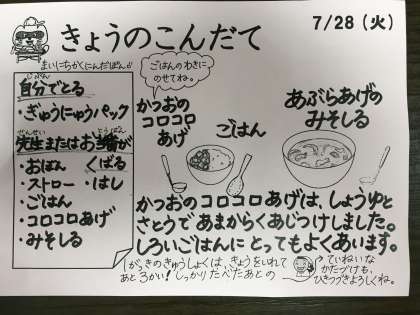 きょうのこんだて
7/28(火)
まいにちかくにんだぽん♪
じぶん
自分でとる
・ぎゅうにゅうパック
せんせい とうばん
先生またはお当番が
くばる
・おぼん
・ストロー ・はし
・ごはん
・コロコロあげ
・みそしる
ごはんのわきに
のせてね。
かつおの
コロコロ
あげ
ごはん
あぶらあげの
みそしる
かつおのコロコロあげは、しょうゆと
さとうであまからくあじつけしました。
しろいごはんにとってもよくあいます。
1がっきのきゅうしょくは、きょうをいれて
あと3かい!しっかりたべたあとの
ていねいな
かたづけも、
ひきつづきよろしくね。